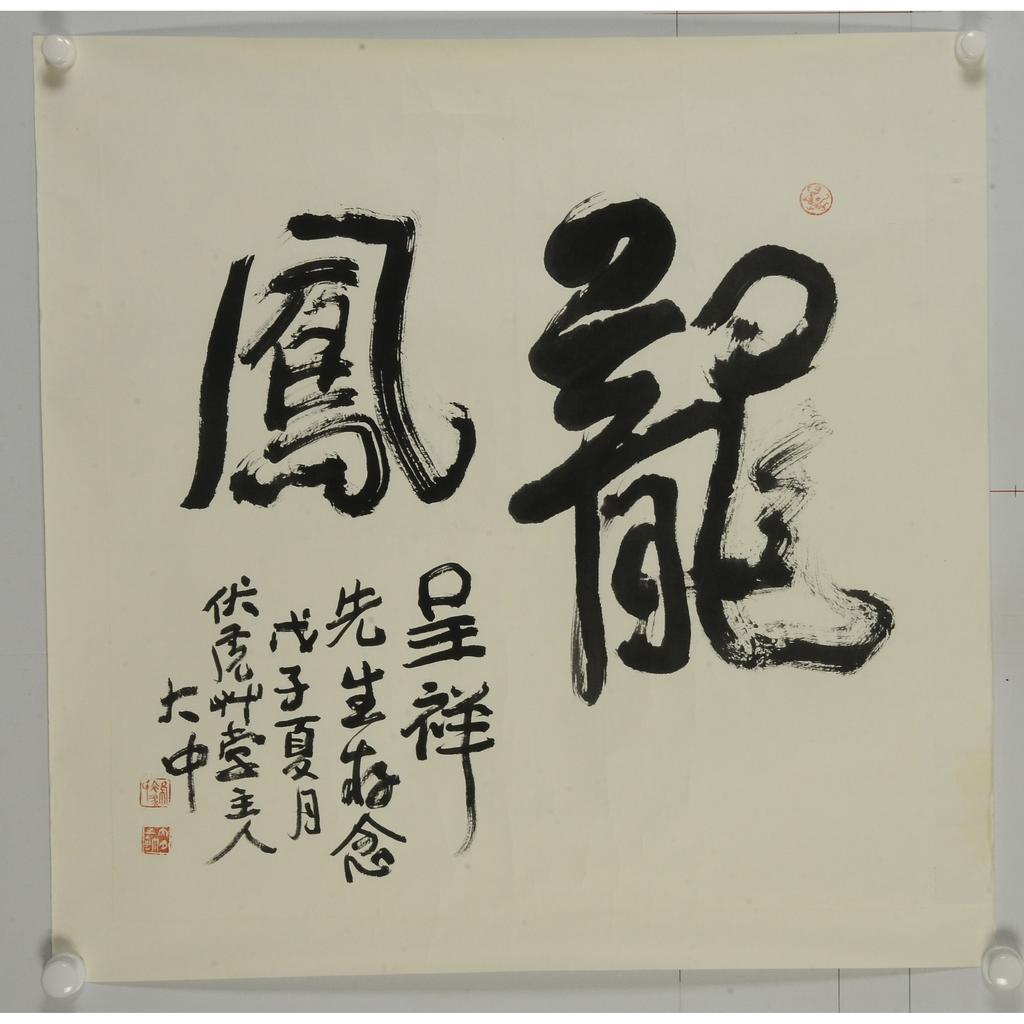 龍鳳
呈祥
先生存念
戊子夏月
伏虎艸堂主人
大中